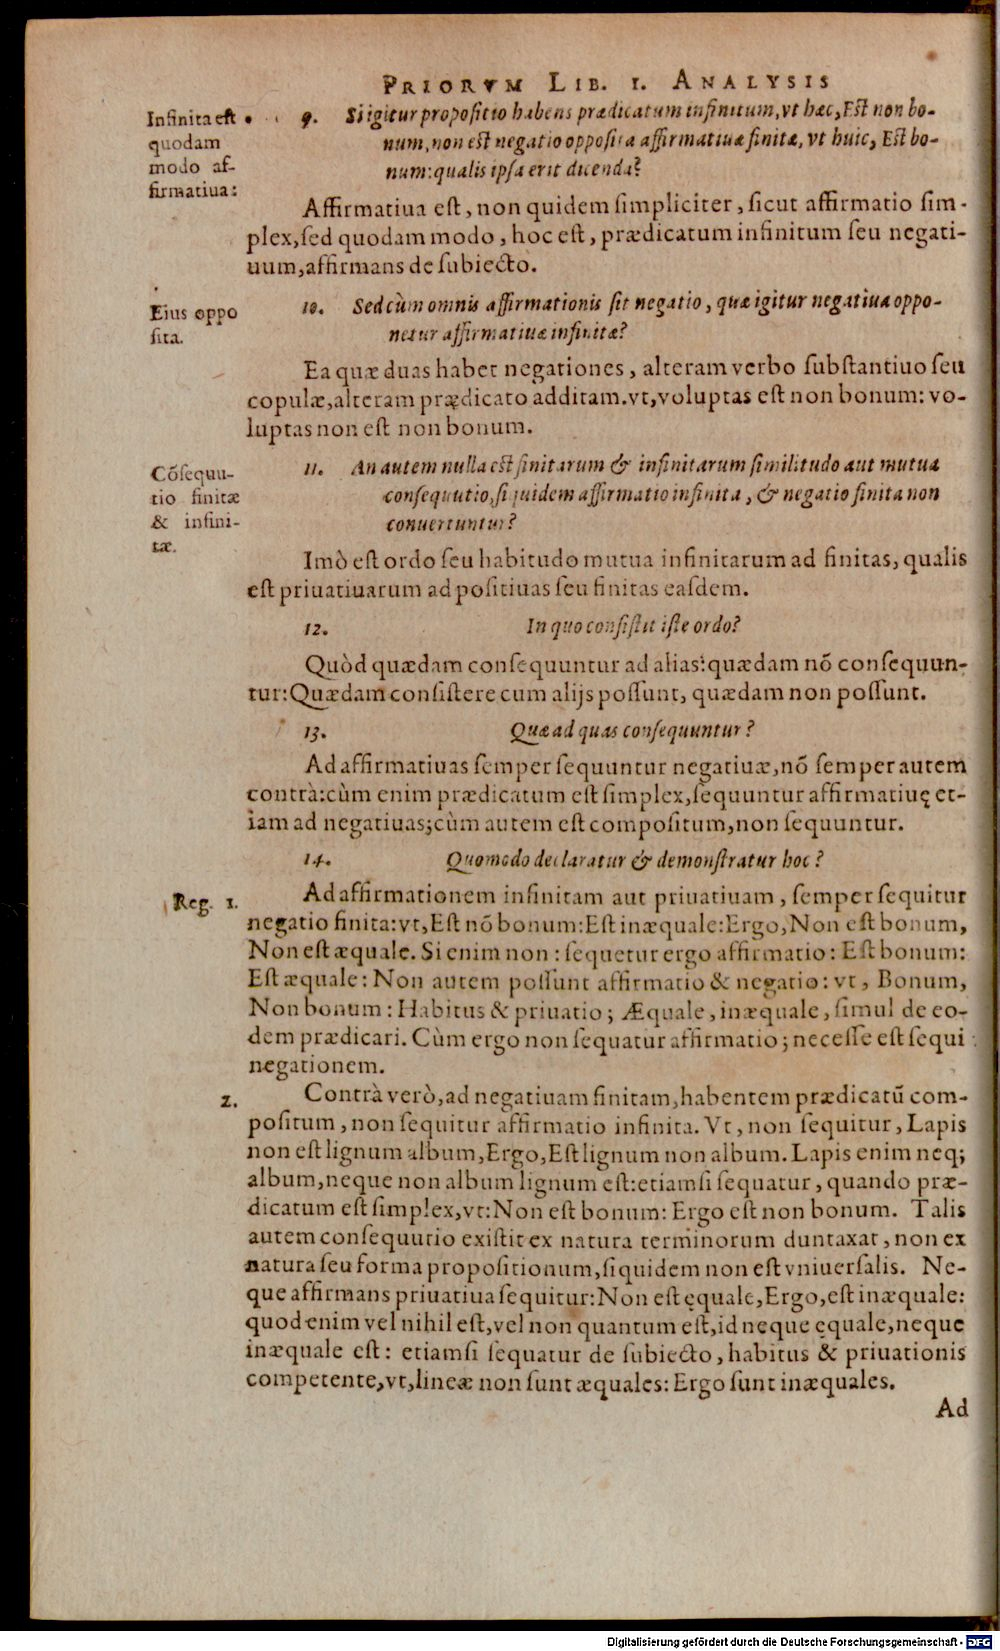 PRIORVM LIB. I. ANALYSIS
Infinita est
quodam
modo af-
firmatiua:
9. Si igitur propositio habens prædicatum infinitum, vt hæc, Est non bo-
num, non est negatio opposita affirmatiuæ finitæ, vt huic, Est bo-
num: qualis ipsa erit dicenda?
Affirmatiua est, non quidem simpliciter, sicut affirmatio sim-
plex, sed quodam modo, hoc est, prædicatum infinitum seu negati-
uum, affirmans de subiecto.
Eius oppo
sita.
10. Sed cùm omnis affirmationis sit negatio, quæ igitur negatiua oppo-
netur affirmatiuæ infinitæ?
Ea quæ duas habet negationes, alteram verbo substantiuo seu
copulæ, alteram prędicato additam. vt, voluptas est non bonum: vo-
luptas non est non bonum.
Cõsequu-
tio finitæ
& infini-
tæ.
11. An autem nulla est finitarum & infinitarum similitudo aut mutua
consequutio, siquidem affirmatio infinita, & negatio finita non
conuertuntur?
Imò est ordo seu habitudo mutua infinitarum ad finitas, qualis
est priuatiuarum ad positiuas seu finitas easdem.
12. In quo consistit iste ordo?
Quòd quædam consequuntur ad alias: quædam nõ consequun-
tur: Quædam consistere cum alijs possunt, quædam non possunt.
13. Quæ ad quas consequuntur?
Ad affirmatiuas semper sequuntur negatiuæ, nõ semper autem
contrà: cùm enim prædicatum est simplex, sequuntur affirmatiuę et-
iam ad negatiuas; cùm autem est compositum, non sequuntur.
14. Quomodo declaratur & demonstratur hoc?
Reg. 1.
Ad affirmationem infinitam aut priuatiuam, semper sequitur
negatio finita: vt, Est nõ bonum: Est inæquale: Ergo, Non est bonum,
Non est æquale. Si enim non: sequetur ergo affirmatio: Est bonum:
Est æquale: Non autem possunt affirmatio & negatio: vt, Bonum,
Non bonum: Habitus & priuatio; Æquale, inæquale, simul de eo-
dem prædicari. Cùm ergo non sequatur affirmatio; necesse est sequi
negationem.
2.
Contrà verò, ad negatiuam finitam, habentem prædicatũ com-
positum, non sequitur affirmatio infinita. Vt, non sequitur, Lapis
non est lignum album, Ergo, Est lignum non album. Lapis enim neq;
album, neque non album lignum est: etiamsi sequatur, quando præ-
dicatum est simplex, vt: Non est bonum: Ergo est non bonum. Talis
autem consequutio existit ex natura terminorum duntaxat, non ex
natura seu forma propositionum, siquidem non est vniuersalis. Ne-
que affirmans priuatiua sequitur: Non est ęquale, Ergo, est inæquale:
quod enim vel nihil est, vel non quantum est, id neque ęquale, neque
inæquale est: etiamsi sequatur de subiecto, habitus & priuationis
competente, vt, lineæ non sunt æquales: Ergo sunt inæquales.
Ad
Digitalisierung gefördert durch die Deutsche Forschungsgemeinschaft - DFG